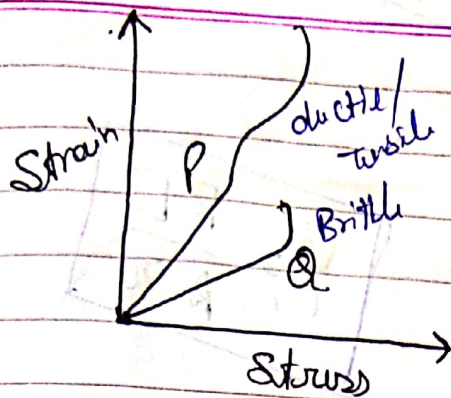 Strain
P
ductil/
tensile
Brittle
Q
Stress